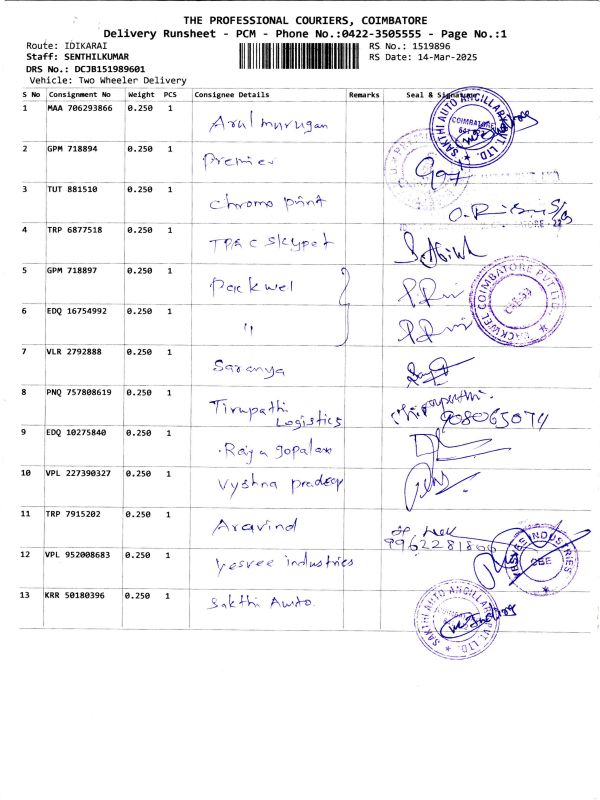 THE PROFESSIONAL COURIERS, COIMBATORE
Delivery Runsheet - PCM - Phone No.:0422-3505555 - Page No.:1
Route: IDIKARAI
RS No.: 1519896
Staff: SENTHILKUMAR
RS Date: 14-Mar-2025
DRS No.: DCJB151989601
Vehicle: Two Wheeler Delivery
S No Consignment No Weight PCS Consignee Details Remarks Seal & Signature
1 MAA 706293866 0.250 1 Arulmurugan
SAKTHI AUTO ANCILLARY PVT. LTD. COIMBATORE
2 GPM 718894 0.250 1 Premier
3 TUT 881510 0.250 1 Chromo print
4 TRP 6877518 0.250 1
5 GPM 718897 0.250 1 Packwel
PACKWEL COIMBATORE PVT LTD.
6 EDQ 16754992 0.250 1 "
7 VLR 2792888 0.250 1 Saranya
8 PNQ 757808619 0.250 1 Tirupathi
Logistics
9 EDQ 10275840 0.250 1 Raja gopalan
10 VPL 227390327 0.250 1 Vyshna pradeep
11 TRP 7915202 0.250 1 Aravind
12 VPL 952008683 0.250 1 Yesvee industries
YESVEE INDUSTRIES CBE
13 KRR 50180396 0.250 1 Sakthi Auto.
SAKTHI AUTO ANCILLARY PVT. LTD.